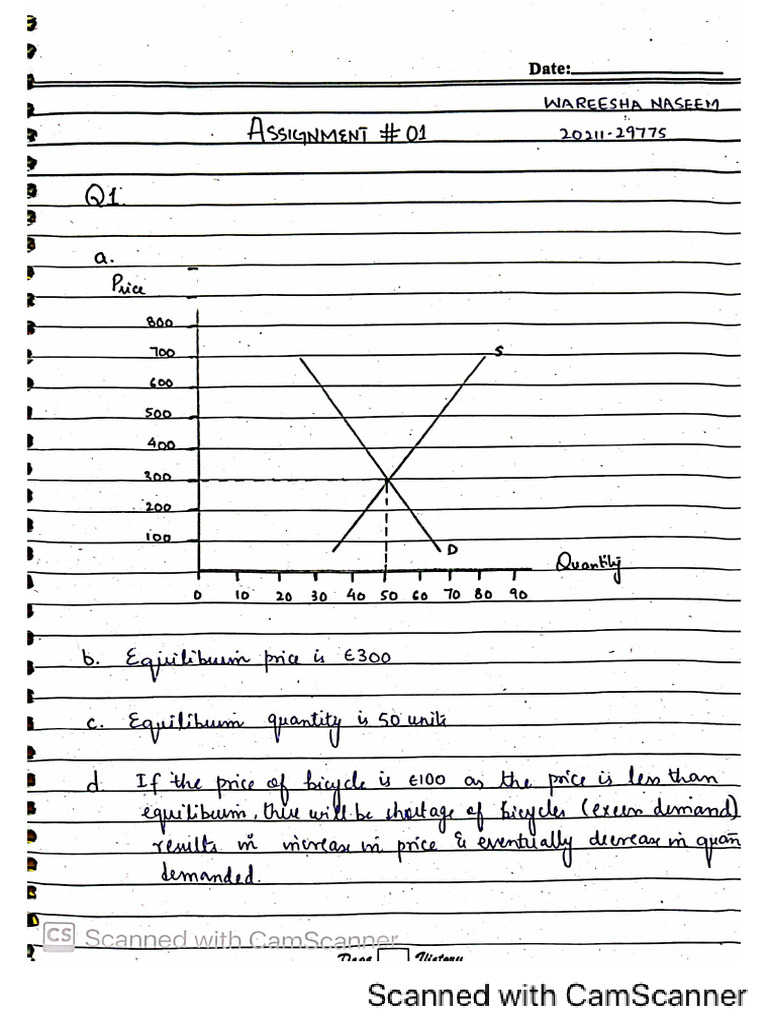 Date:
WAREESHA NASEEM
ASSIGNMENT # 01
20211-29775
Q1.
a.
Price
800
700
S
600
500
400
300
200
100
D
Quantity
0 10 20 30 40 50 60 70 80 90
b. Equilibium price is €300
c. Equilibium quantity is 50 units
d. If the price of bicycle is €100 as the price is less than
equilibium, there will be shortage of bicycles (excess demand)
results in increase in price & eventually decrease in quan
demanded.
CS Scanned with CamScanner
Scanned with CamScanner